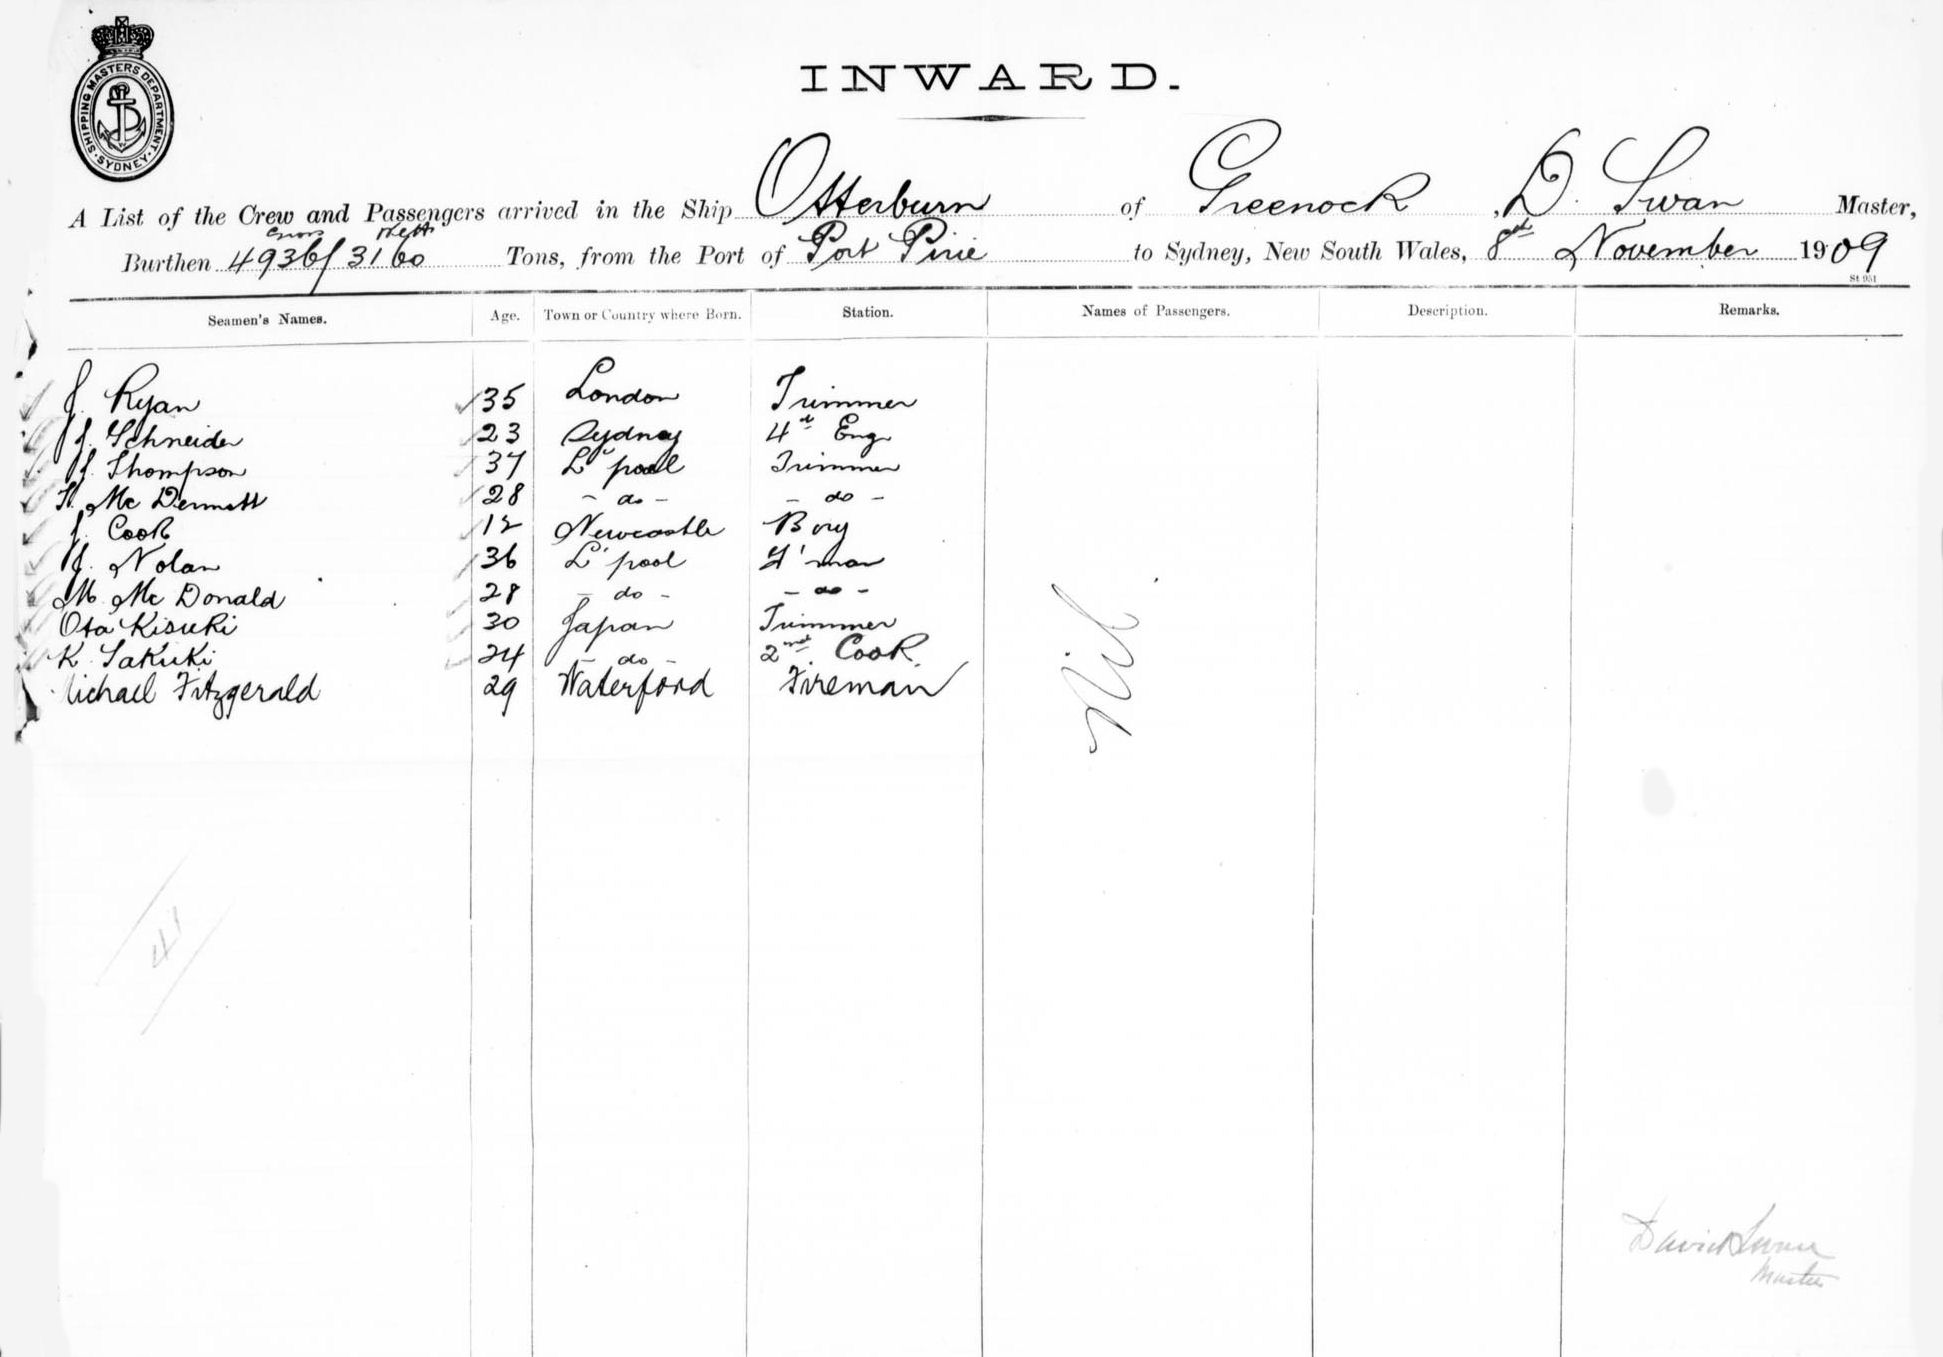 SHIPPING MASTERS DEPARTMENT. SYDNEY
INWARD.
A List of the Crew and Passengers arrived in the Ship Otterburn of Greenock, D. Swan Master,
Gross Nett
Burthen 4936/3160 Tons, from the Port of Port Pirie to Sydney, New South Wales, 8th November 1909
St 951
Seamen's Names. Age. Town or Country where Born. Station. Names of Passengers. Description. Remarks.
J. Ryan 35 London Trimmer
J. Schneider 23 Sydney 4th Eng
J. Thompson 37 L'pool Trimmer
Mc Dermott 28 - do - - do -
J. Cook Newcastle Boy
Nolan 36 L'pool F'man
M. Mc Donald 28 - do - - do -
Ota Kisuki 30 Japan Trimmer
K. Sakuki 24 - do - 2nd Cook
Michael Fitzgerald 29 Waterford Fireman
Nil
41
David Swan
Master